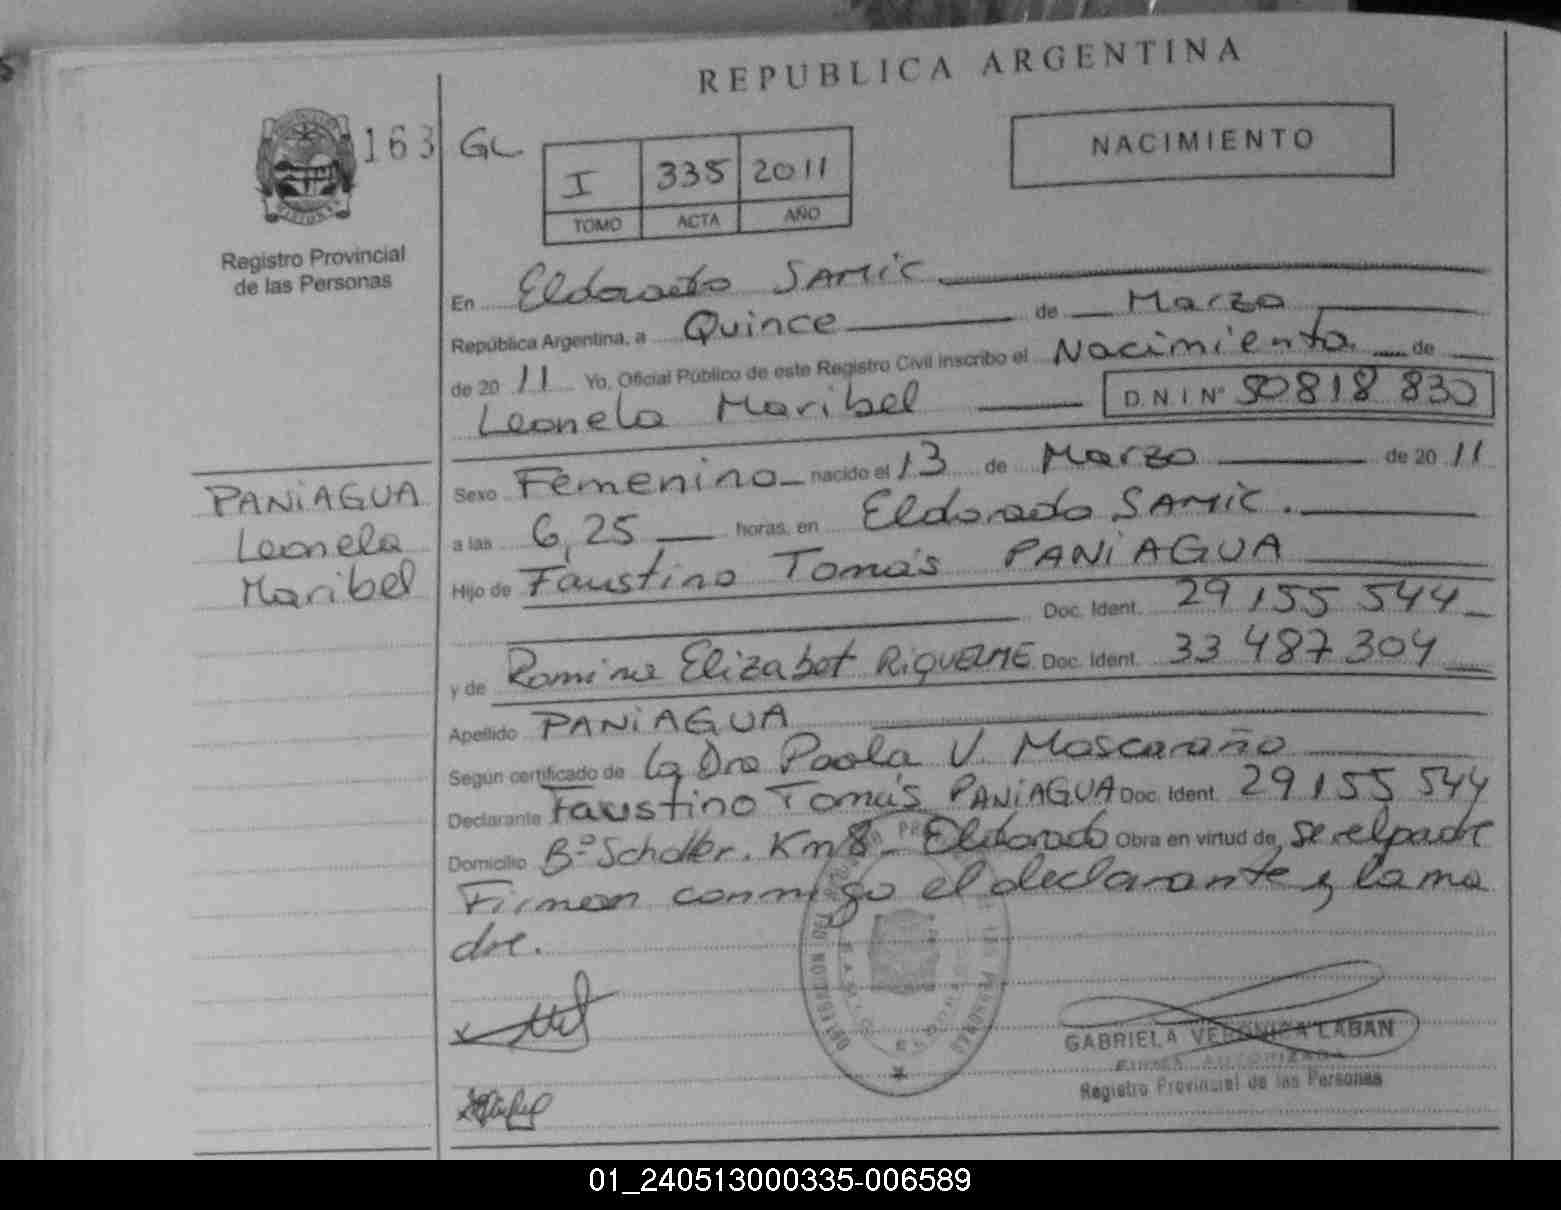 REPUBLICA ARGENTINA
163 GL
NACIMIENTO
I 335 2011
TOMO ACTA AÑO
Registro Provincial
de las Personas
En Eldorado SAMiC
República Argentina, a Quince de Marzo
de 20 11 Yo, Oficial Público de este Registro Civil inscribo el Nacimiento de
Leonela Maribel D.N.I Nº 50818 830
Sexo Femenino nacido el 13 de Marzo de 20 11
PANiAGUA
Leonela
Maribel
a las 6,25 horas, en Eldorado SAMiC.
Hijo de Faustino Tomás PANiAGUA
Doc. Ident. 29 155 544
y de Romina Elizabet RiQUELME Doc. Ident. 33 487 304
Apellido PANiAGUA
Según certificado de la Dra Paola V.
Declarante Faustino Tomás PANiAGUA Doc. Ident. 29 155 544
Domicilio Bº Km 8 Eldorado Obra en virtud de se el padre
Firman conmigo el declarante y la ma
dre.
GABRIELA VERONICA LABAN
FIRMA AUTORIZADA
Registro Provincial de las Personas
01_240513000335-006589